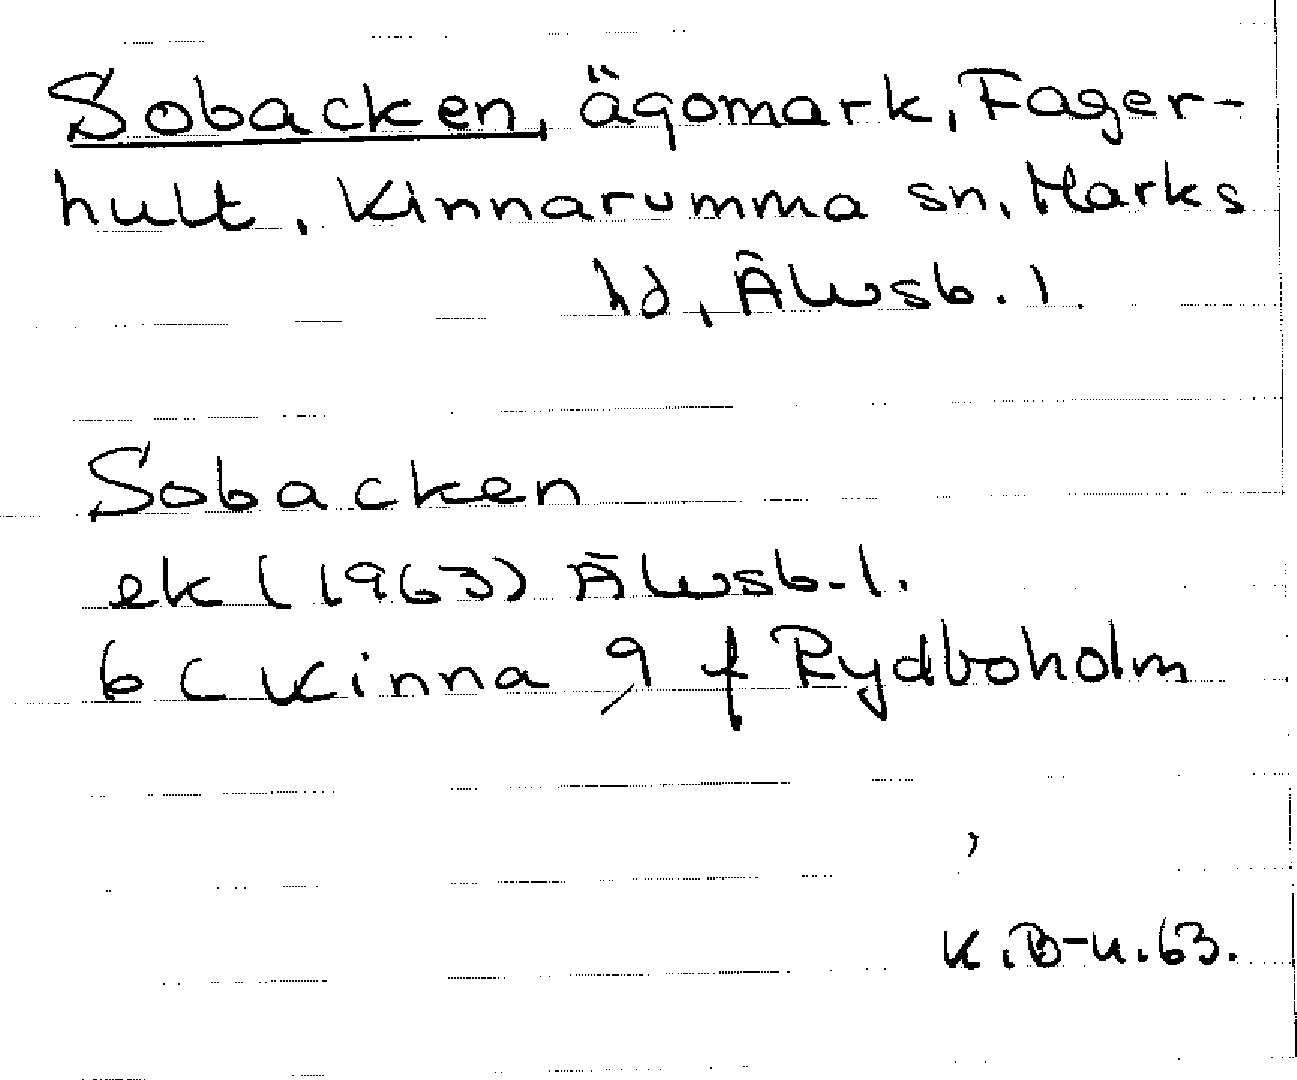 Sobacken, ägomark, Fager-
hult, Kinnarumma sn, Marks
hd, Älvsb. l.
Sobacken
ek (1963) Älvsb. l.
6 C Kinna 9 f Rydboholm
K.B-n.63.